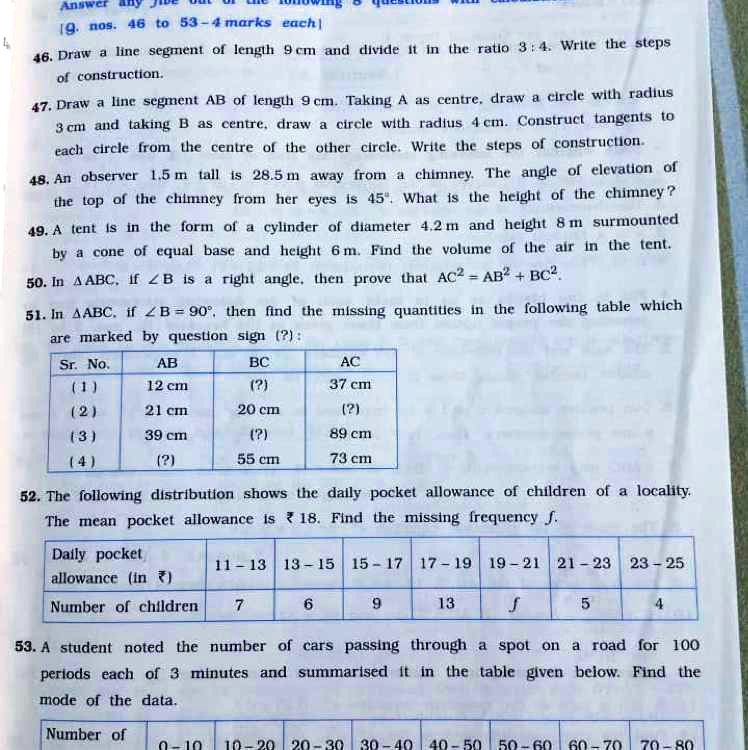 Answer any five out of the following 8 questions with
[Q. nos. 46 to 53 – 4 marks each]
46. Draw a line segment of length 9 cm and divide it in the ratio 3 : 4. Write the steps
of construction.
47. Draw a line segment AB of length 9 cm. Taking A as centre, draw a circle with radius
3 cm and taking B as centre, draw a circle with radius 4 cm. Construct tangents to
each circle from the centre of the other circle. Write the steps of construction.
48. An observer 1.5 m tall is 28.5 m away from a chimney. The angle of elevation of
the top of the chimney from her eyes is 45°. What is the height of the chimney ?
49. A tent is in the form of a cylinder of diameter 4.2 m and height 8 m surmounted
by a cone of equal base and height 6 m. Find the volume of the air in the tent.
50. In △ABC, if ∠B is a right angle, then prove that AC² = AB² + BC².
51. In △ABC, if ∠B = 90°, then find the missing quantities in the following table which
are marked by question sign (?) :
Sr. No. AB BC AC
(1) 12 cm (?) 37 cm
(2) 21 cm 20 cm (?)
(3) 39 cm (?) 89 cm
(4) (?) 55 cm 73 cm
52. The following distribution shows the daily pocket allowance of children of a locality.
The mean pocket allowance is ₹ 18. Find the missing frequency f.
Daily pocket
allowance (in ₹) 11 – 13 13 – 15 15 – 17 17 – 19 19 – 21 21 – 23 23 – 25
Number of children 7 6 9 13 f 5 4
53. A student noted the number of cars passing through a spot on a road for 100
periods each of 3 minutes and summarised it in the table given below. Find the
mode of the data.
Number of
0 – 10 10 – 20 20 – 30 30 – 40 40 – 50 50 – 60 60 – 70 70 – 80